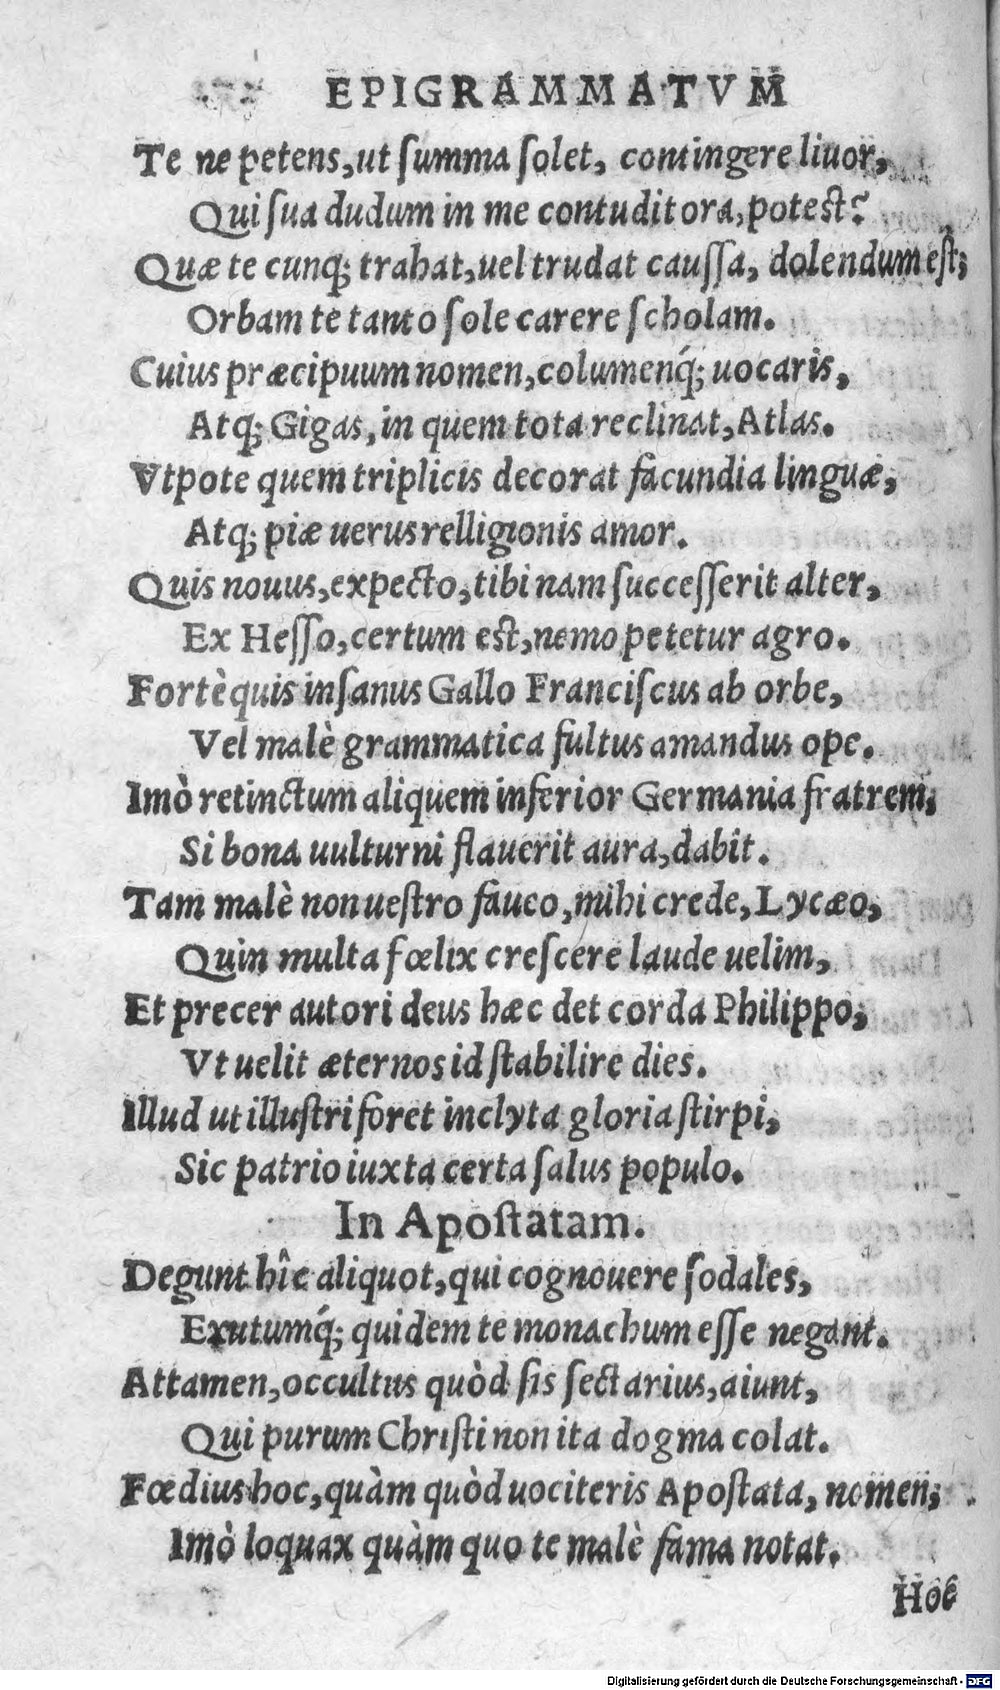 EPIGRAMMATVM
Te ne petens, ut ſumma ſolet, contingere liuor,
Qui ſua dudum in me contudit ora, poteſt?
Quæ te cunq; trahat, uel trudat cauſſa, dolendum eſt;
Orbam te tanto ſole carere ſcholam.
Cuius præcipuum nomen, columenq́; uocaris,
Atq; Gigas, in quem tota reclinat, Atlas.
Vtpote quem triplicis decorat facundia linguæ,
Atq; piæ uerus relligionis amor.
Quis nouus, expecto, tibi nam ſucceſſerit alter,
Ex Heſſo, certum eſt, nemo petetur agro.
Fortè quis inſanus Gallo Franciſcus ab orbe,
Vel malè grammatica fultus amandus ope.
Imò retinctum aliquem inferior Germania fratrem,
Si bona uulturni flauerit aura, dabit.
Tam malè non ueſtro faueo, mihi crede, Lycæo,
Quin multa fœlix creſcere laude uelim,
Et precer autori deus hæc det corda Philippo,
Vt uelit æternos id ſtabilire dies.
Illud ut illuſtri foret inclyta gloria ſtirpi,
Sic patrio iuxta certa ſalus populo.
In Apoſtatam.
Degunt hîc aliquot, qui cognouere ſodales,
Exutumq́; quidem te monachum eſſe negant.
Attamen, occultus quòd ſis ſectarius, aiunt,
Qui purum Chriſti non ita dogma colat.
Fœdius hoc, quàm quòd uociteris Apoſtata, nomen,
Imò loquax quàm quo te malè fama notat.
Hoc
Digitalisierung gefördert durch die Deutsche Forschungsgemeinschaft - DFG